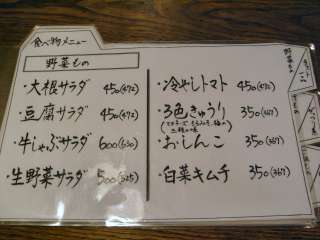 食べ物メニュー
野菜もの
・大根サラダ 450(472)
・豆腐サラダ 450(472)
・牛しゃぶサラダ 600(630)
・生野菜サラダ 500(525)
・冷やしトマト 450(472)
・3色きゅうり 350(367)
・おしんこ 350(367)
・白菜キムチ 350(367)
野菜もの